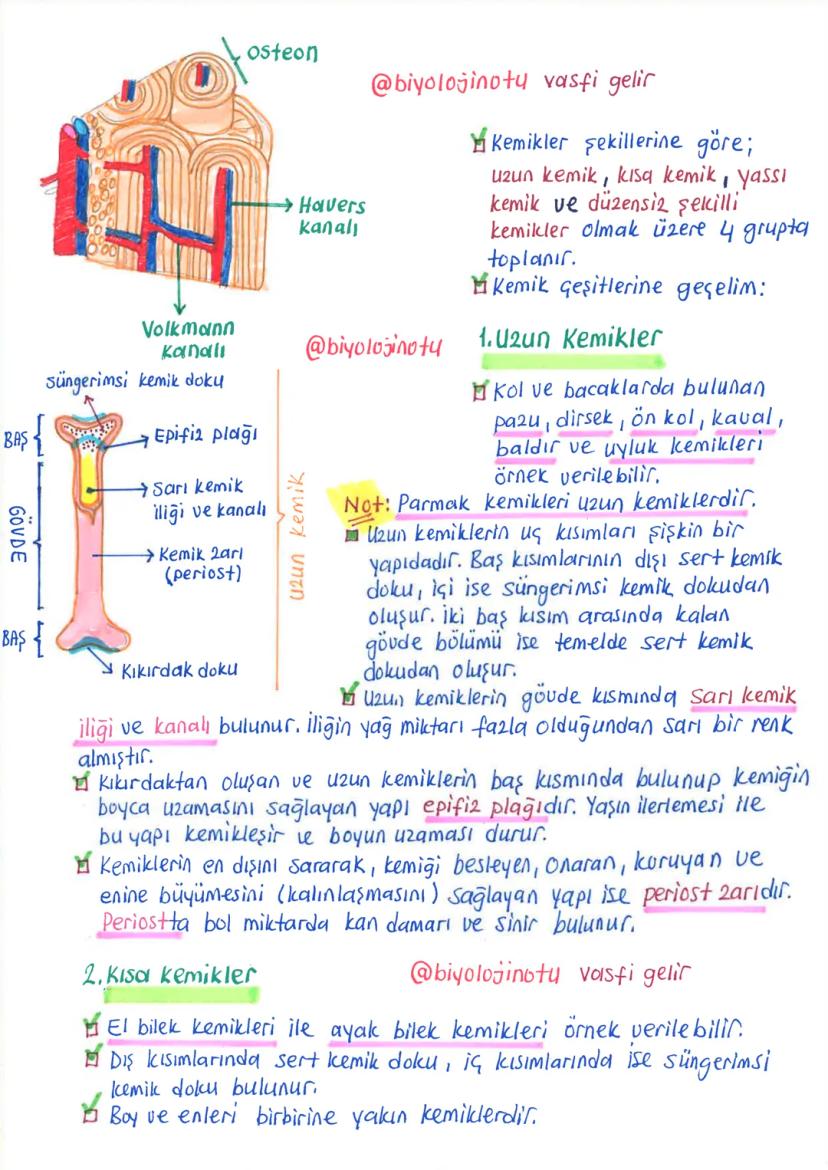 osteon
@biyolojinotu vasfi gelir
Havers
kanalı
Volkmann
kanalı
Kemikler şekillerine göre;
uzun kemik, kısa kemik, yassı
kemik ve düzensiz şekilli
kemikler olmak üzere 4 grupta
toplanır.
Kemik çeşitlerine geçelim:
@biyolojinotu
1. Uzun Kemikler
süngerimsi kemik doku
BAŞ
Epifiz plağı
Sarı kemik
iliği ve kanalı
GÖVDE
Kemik zarı
(periost)
BAŞ
Kıkırdak doku
uzun kemik
Kol ve bacaklarda bulunan
pazu, dirsek, ön kol, kaval,
baldır ve uyluk kemikleri
örnek verilebilir.
Not: Parmak kemikleri uzun kemiklerdir.
Uzun kemiklerin uç kısımları şişkin bir
yapıdadır. Baş kısımlarının dışı sert kemik
doku, içi ise süngerimsi kemik dokudan
oluşur. İki baş kısım arasında kalan
gövde bölümü ise temelde sert kemik
dokudan oluşur.
Uzun kemiklerin gövde kısmında sarı kemik
iliği ve kanalı bulunur. İliğin yağ miktarı fazla olduğundan sarı bir renk
almıştır.
Kıkırdaktan oluşan ve uzun kemiklerin baş kısmında bulunup kemiğin
boyca uzamasını sağlayan yapı epifiz plağıdır. Yaşın ilerlemesi ile
bu yapı kemikleşir ve boyun uzaması durur.
Kemiklerin en dışını sararak, kemiği besleyen, onaran, koruyan ve
enine büyümesini (kalınlaşmasını) sağlayan yapı ise periost zarıdır.
Periostta bol miktarda kan damarı ve sinir bulunur.
2. Kısa Kemikler
@biyolojinotu vasfi gelir
El bilek kemikleri ile ayak bilek kemikleri örnek verilebilir.
Dış kısımlarında sert kemik doku, iç kısımlarında ise süngerimsi
kemik doku bulunur.
Boy ve enleri birbirine yakın kemiklerdir.